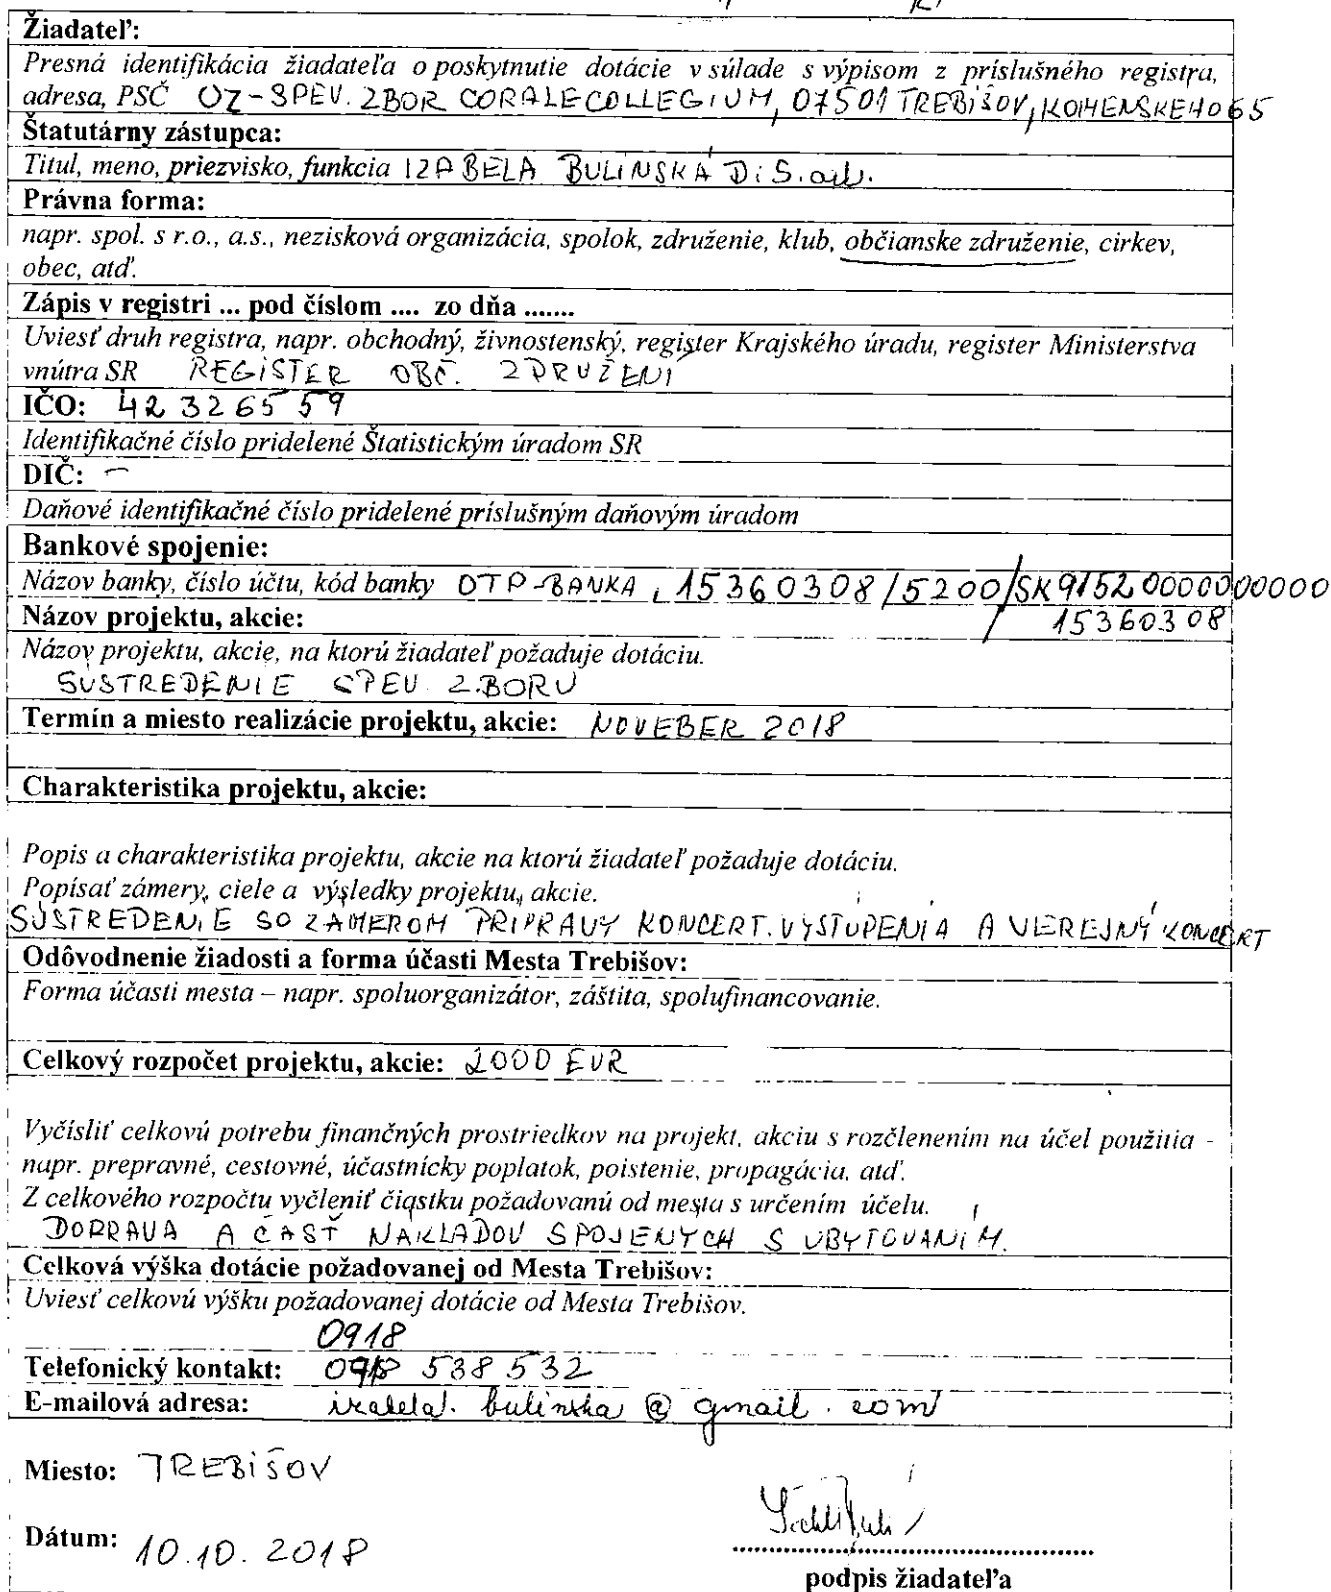 Žiadateľ:
Presná identifikácia žiadateľa o poskytnutie dotácie v súlade s výpisom z príslušného registra,
adresa, PSČ OZ-SPEV. ZBOR CORALECOLLEGIUM, 07501 TREBIŠOV, KOMENSKEHO 65
Štatutárny zástupca:
Titul, meno, priezvisko, funkcia IZABELA BULINSKÁ DiS.art.
Právna forma:
napr. spol. s r.o., a.s., nezisková organizácia, spolok, združenie, klub, občianske združenie, cirkev,
obec, atď.
Zápis v registri ... pod číslom .... zo dňa .......
Uviesť druh registra, napr. obchodný, živnostenský, register Krajského úradu, register Ministerstva
vnútra SR REGISTER OBČ. ZDRUŽENÍ
IČO: 42326559
Identifikačné číslo pridelené Štatistickým úradom SR
DIČ: —
Daňové identifikačné číslo pridelené príslušným daňovým úradom
Bankové spojenie:
Názov banky, číslo účtu, kód banky OTP-BANKA, 15360308/5200/SK9152000000000
Názov projektu, akcie: 15360308
Názov projektu, akcie, na ktorú žiadateľ požaduje dotáciu.
SÚSTREDENIE SPEV. ZBORU
Termín a miesto realizácie projektu, akcie: NOVEBER 2018
Charakteristika projektu, akcie:
Popis a charakteristika projektu, akcie na ktorú žiadateľ požaduje dotáciu.
Popísať zámery, ciele a výsledky projektu, akcie.
SÚSTREDENIE SO ZÁMEROM PRÍPRAVY KONCERT. VYSTÚPENIA A VEREJNÝ KONCERT
Odôvodnenie žiadosti a forma účasti Mesta Trebišov:
Forma účasti mesta – napr. spoluorganizátor, záštita, spolufinancovanie.
Celkový rozpočet projektu, akcie: 2000 EUR
Vyčísliť celkovú potrebu finančných prostriedkov na projekt, akciu s rozčlenením na účel použitia -
napr. prepravné, cestovné, účastnícky poplatok, poistenie, propagácia, atď.
Z celkového rozpočtu vyčleniť čiastku požadovanú od mesta s určením účelu.
DOPRAVA A ČASŤ NÁKLADOV SPOJENÝCH S UBYTOVANÍM.
Celková výška dotácie požadovanej od Mesta Trebišov:
Uviesť celkovú výšku požadovanej dotácie od Mesta Trebišov.
0918
Telefonický kontakt: 0918 538 532
E-mailová adresa: izabela.bulinska@gmail.com
Miesto: TREBIŠOV
Dátum: 10.10.2018
podpis žiadateľa